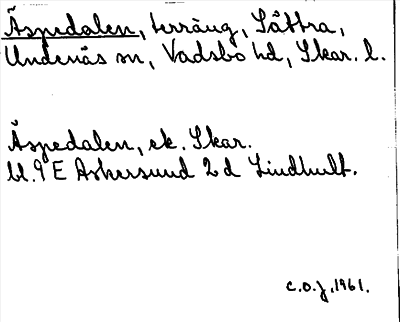 Äspedalen, terräng, Sätra,
Undenäs sn, Vadsbo hd, Skar. l.
Äspedalen, ek. Skar.
bl. 9 E Askersund 2d Lindhult.
C.O.J. 1961.